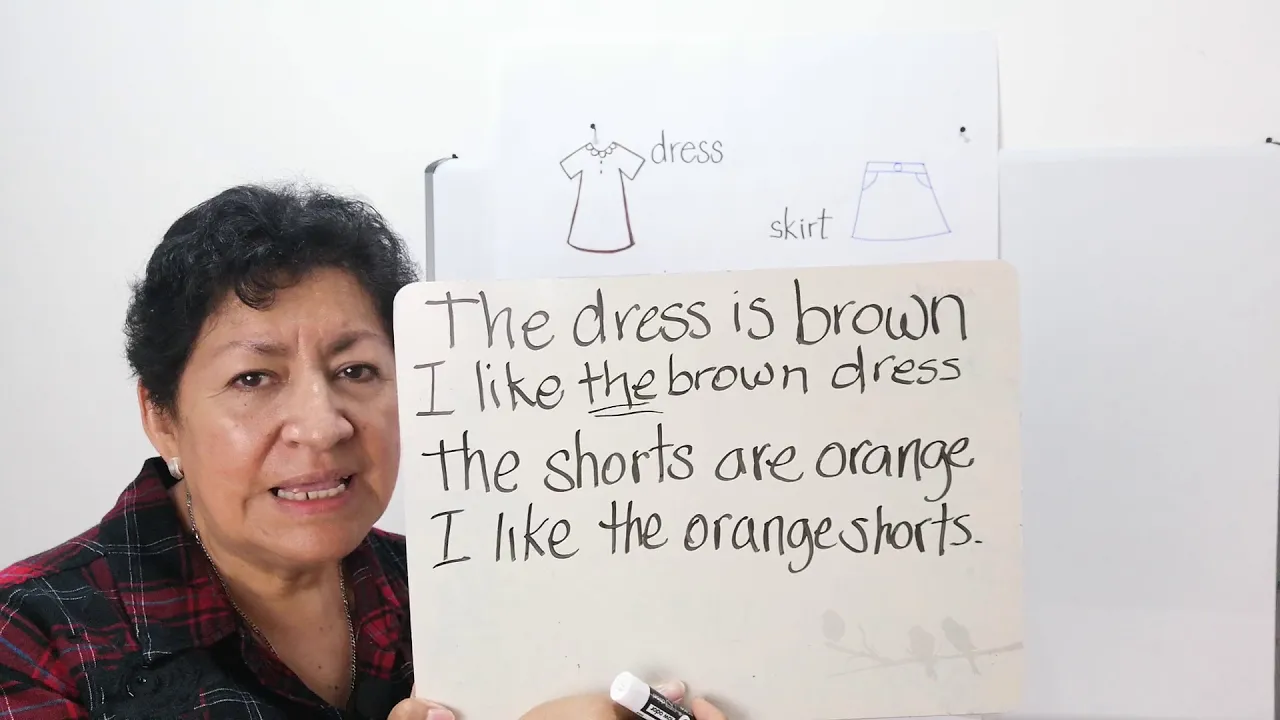 dress
skirt
The dress is brown
I like the brown dress
the shorts are orange
I like the orange shorts.